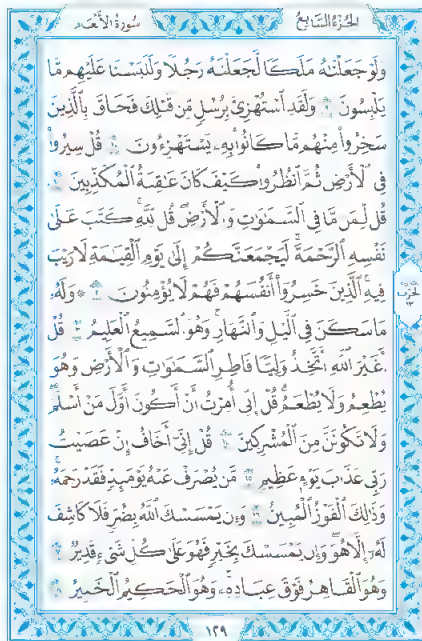 سُورَةُ الأَنْعَام
الجُزْءُ السَّابِعُ
وَلَوْ جَعَلْنَٰهُ مَلَكًا لَّجَعَلْنَٰهُ رَجُلًا وَلَلَبَسْنَا عَلَيْهِم مَّا
يَلْبِسُونَ ٩ وَلَقَدِ ٱسْتُهْزِئَ بِرُسُلٍ مِّن قَبْلِكَ فَحَاقَ بِٱلَّذِينَ
سَخِرُوا۟ مِنْهُم مَّا كَانُوا۟ بِهِۦ يَسْتَهْزِءُونَ ١٠ قُلْ سِيرُوا۟
فِى ٱلْأَرْضِ ثُمَّ ٱنظُرُوا۟ كَيْفَ كَانَ عَٰقِبَةُ ٱلْمُكَذِّبِينَ ١١
قُل لِّمَن مَّا فِى ٱلسَّمَٰوَٰتِ وَٱلْأَرْضِ قُل لِّلَّهِ كَتَبَ عَلَىٰ
نَفْسِهِ ٱلرَّحْمَةَ لَيَجْمَعَنَّكُمْ إِلَىٰ يَوْمِ ٱلْقِيَٰمَةِ لَا رَيْبَ
فِيهِ ٱلَّذِينَ خَسِرُوٓا۟ أَنفُسَهُمْ فَهُمْ لَا يُؤْمِنُونَ ١٢ ۞ وَلَهُۥ
مَا سَكَنَ فِى ٱلَّيْلِ وَٱلنَّهَارِ وَهُوَ ٱلسَّمِيعُ ٱلْعَلِيمُ ١٣ قُلْ
أَغَيْرَ ٱللَّهِ أَتَّخِذُ وَلِيًّا فَاطِرِ ٱلسَّمَٰوَٰتِ وَٱلْأَرْضِ وَهُوَ
يُطْعِمُ وَلَا يُطْعَمُ قُلْ إِنِّىٓ أُمِرْتُ أَنْ أَكُونَ أَوَّلَ مَنْ أَسْلَمَ
وَلَا تَكُونَنَّ مِنَ ٱلْمُشْرِكِينَ ١٤ قُلْ إِنِّىٓ أَخَافُ إِنْ عَصَيْتُ
رَبِّى عَذَابَ يَوْمٍ عَظِيمٍ ١٥ مَّن يُصْرَفْ عَنْهُ يَوْمَئِذٍ فَقَدْ رَحِمَهُۥ
وَذَٰلِكَ ٱلْفَوْزُ ٱلْمُبِينُ ١٦ وَإِن يَمْسَسْكَ ٱللَّهُ بِضُرٍّ فَلَا كَاشِفَ
لَهُۥٓ إِلَّا هُوَ وَإِن يَمْسَسْكَ بِخَيْرٍ فَهُوَ عَلَىٰ كُلِّ شَىْءٍ قَدِيرٌ ١٧
وَهُوَ ٱلْقَاهِرُ فَوْقَ عِبَادِهِۦ وَهُوَ ٱلْحَكِيمُ ٱلْخَبِيرُ ١٨
الحزب
١٣
١٢٩